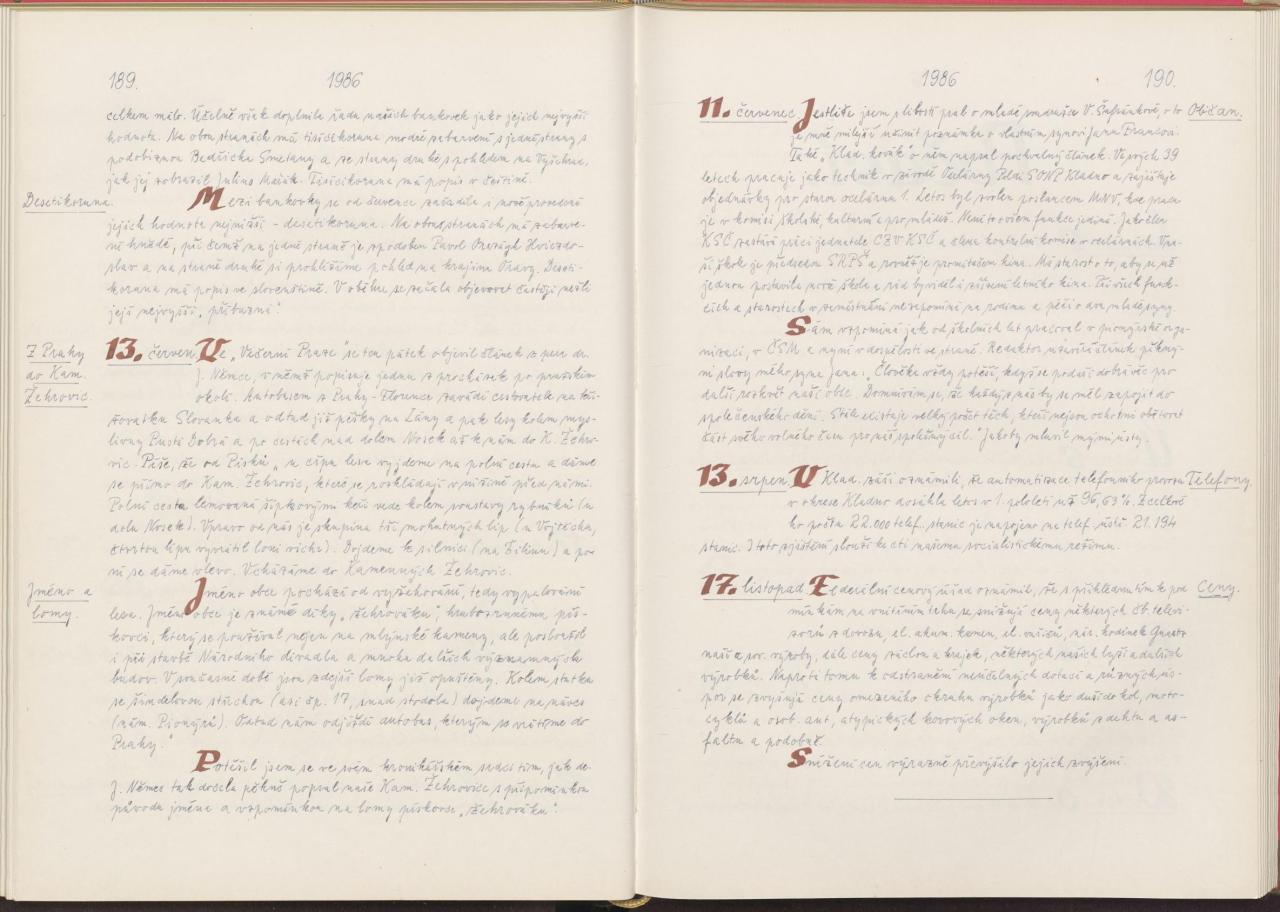 189.
1986
celkem málo. Účelně však doplnila řadu našich bankovek jako jejich nejvyšší
hodnota. Na obou stranách má tisícikoruna modré zabarvení s jedné strany s
podobiznou Bedřicha Smetany a ze strany druhé s pohledem na Vyšehrad,
jak jej zobrazil Julius Mařák. Tisícikoruna má popis v češtině.
Desetikoruna.
Mezi bankovky se od července zařadila i nově provedená
jejich hodnota nejnižší - desetikoruna. Na obou stranách má zabarve-
ní hnědé, při čemž na jedné straně je vypodoben Pavol Országh Hviezdo-
slav a na straně druhé si prohlížíme pohled na krajinu Oravy. Deseti-
koruna má popis ve slovenštině. V oběhu se začala objevovat častěji nežli
její nejvyšší „příbuzná".
Z Prahy
do Kam.
Žehrovic.
13. červen. Ve „Večerní Praze" se ten pátek objevil článek z pera dr.
J. Němce, v němž popisuje jednu z procházek po pražském
okolí. Autobusem z Prahy - Florence zavádí cestovatele na kři-
žovatku Slovanka a odtud již pěšky na Lány a pak lesy kolem mys-
livny Pustá Dobrá a po cestách nad dolem Nosek až k nám do K. Žehro-
vic. Píše, že od Písků „u cípu lesa vyjdeme na polní cestu a dáme
se přímo do Kam. Žehrovic, které se rozkládají v nížině před námi.
Polní cesta lemovaná šípkovými keři vede kolem soustavy rybníků (u
dolu Nosek). Vpravo od nás je skupina tří mohutných lip (u Vojtěcha,
čtvrtou lípu vyvrátil loni vichr). Dojdeme k silnici (na Zilium) a po
ní se dáme vlevo. Vcházíme do Kamenných Žehrovic.
Jméno a
lomy.
Jméno obce pochází od vyžehování, tedy vypalování
lesa. Jméno obce je známé díky „žehrováku", hrubozrnnému pís-
kovci, který se používal nejen na mlýnské kameny, ale posloužil
i při stavbě Národního divadla a mnoha dalších významných
budov. V současné době jsou zdejší lomy již opuštěny. Kolem statku
se šindelovou střechou (asi čp. 17, snad stodola) dojdeme na náves
(nám. Pionýrů). Odtud nám odjíždí autobus, kterým se vrátíme do
Prahy."
Potěšil jsem se ve svém kronikářském srdci tím, jak dr.
J. Němec tak docela pěkně popsal naše Kam. Žehrovice s připomínkou
původu jména a vzpomínkou na lomy pískovce „žehrováku".
1986
190.
11. červenec. Jestliže jsem s libostí psal o mladé soudružce V. Šafránkové, o to
Občan.
je mně milejší učinit poznámku o vlastním synovi Janu Francovi.
Také „Klad. kovák" o něm napsal pochvalný článek. Ve svých 39
letech pracuje jako technik v závodě Ocelárny Poldi SONP Kladno a zajišťuje
objednávky pro starou ocelárnu 1. Letos byl zvolen poslancem MNV, kde pracu-
je v komisi školské, kulturní a pro mládež. Není to ovšem funkce jediná. Jako člen
KSČ zastává práci jednatele CZV KSČ a člena kontrolní komise v ocelárnách. V na-
ší škole je předsedou SRPŠ a rovněž je promítačem kina. Má starost o to, aby se už
jednou postavila nová škola a rád by viděl i zřízení letního kina. Při všech funk-
cích a starostech v zaměstnání nezapomíná na rodinu a péči o dva mladé syny.
Sám vzpomíná jak od školních let pracoval v pionýrské orga-
nizaci, v ČSM a nyní v dospělosti ve straně. Redaktor uzavírá článek pěkný-
mi slovy mého syna Jana: „Člověka vždy potěší, když se podaří dobrá věc pro
další rozkvět naší obce. Domnívám se, že každý z nás by se měl zapojit do
společenského dění. Stále existuje velký počet těch, kteří nejsou ochotni obětovat
část svého volného času pro náš společný cíl." Jakoby mluvil mými ústy.
13. srpen. V Klad. záři oznámili, že automatizace telefonního provozu
Telefony.
v okrese Kladno dosáhla letos v 1. pololetí už 96,63 %. Z celkové-
ho počtu 22.000 telef. stanic je napojeno na telef. ústř. 21.194
stanic. I toto zjištění slouží ke cti našemu socialistickému režimu.
17. listopad. Federální cenový úřad oznámil, že s přihlédnutím k pod-
Ceny.
mínkám na vnitřním trhu se snižují ceny některých čb. televi-
zorů z dovozu, el. akum. kamen, el. mixérů, nár. hodinek Quartz
naší a sov. výroby, dále ceny záclon a krajek, některých našich lyží a dalších
výrobků. Naproti tomu k odstranění neúčelných dotací a různých ús-
por se zvyšují ceny omezeného okruhu výrobků jako duší do kol, moto-
cyklů a osob. aut, atypických kovových oken, výrobků z dehtu a as-
faltu a podobně.
Snížení cen výrazně převýšilo jejich zvýšení.